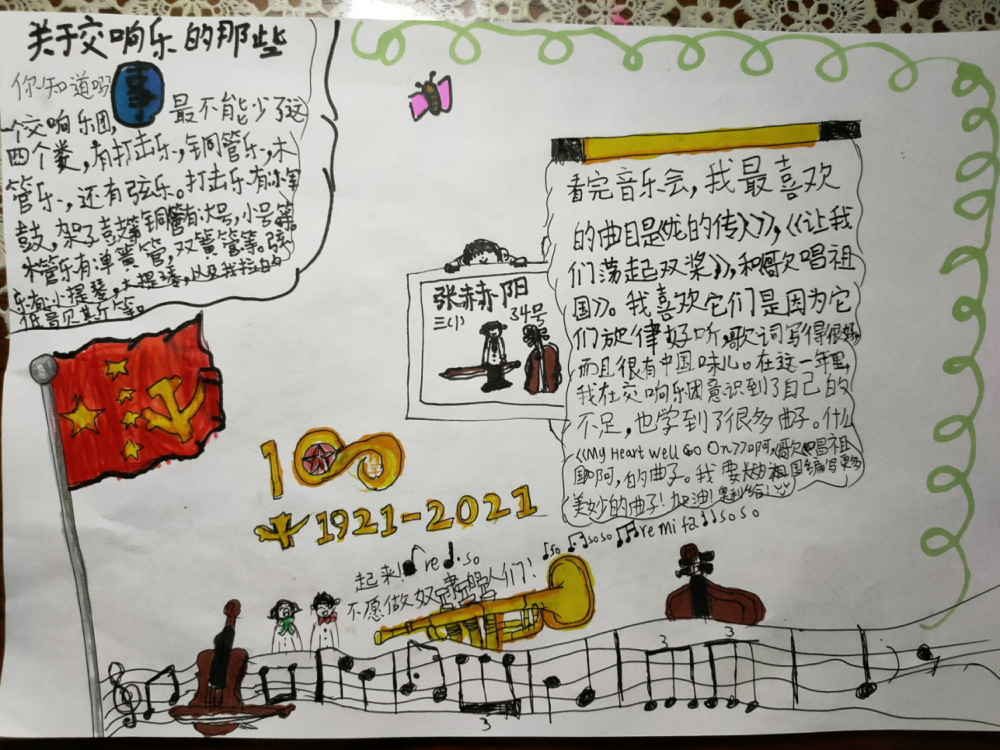 关于交响乐的那些
事
你知道吗
一个交响乐团,最不能少了这
四个类,有打击乐,铜管乐,木
管乐,还有弦乐。打击乐有小军
鼓,架子鼓等铜管有大号,小号等。
木管乐有单簧管,双簧管等。弦
乐有小提琴,大提琴,以及我拉的
低音贝斯等等
看完音乐会,我最喜欢
的曲目是《龙的传人》,《让我
们荡起双桨》,和《歌唱祖
国》。我喜欢它们是因为它
们旋律好听,歌词写得很好,
而且很有中国味儿。在这一年里,
我在交响乐团意识到了自己的
不足,也学到了很多曲子。什么
《My Heart well Go On》啊,《歌唱祖
国》啊,的曲子。我要为祖国编写更多
美妙的曲子!加油!奥利给!
张赫阳
三(1) 34号
100
1921-2021
起来! re so
不愿做奴隶的人们!
so so so re mi fa so so
3
3
3